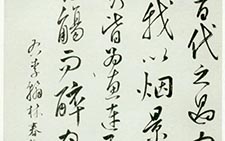 百代之過
我以烟景
皆為惠連
觴而醉
右李翰林春